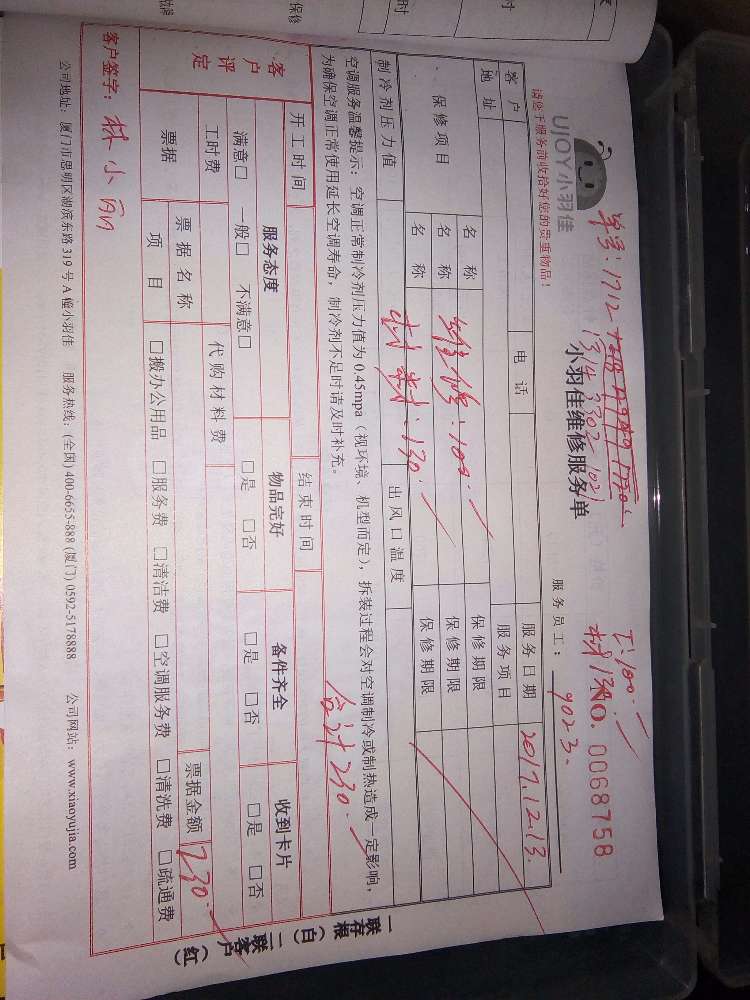 单号:1712
13143302 1021
工:100.
材130
UJOY小羽佳
请您于服务前收拾好您的贵重物品!
小羽佳维修服务单
NO. 0068758
服务员工: 9023.
客户 电话 服务日期 2017.12.13.
地址 服务项目
保修项目 名称 维修:100. 保修期限
名称 材料:130. 保修期限
名称 保修期限
制冷剂压力值 出风口温度
空调服务温馨提示:空调正常制冷剂压力值为0.45mpa(视环境、机型而定),拆装过程会对空调制冷或制热造成一定影响,
为确保空调正常使用延长空调寿命,制冷剂不足时请及时补充。
合计230.
开工时间 结束时间
客户评定 服务态度 物品完好 备件齐全 收到卡片
满意□ 一般□ 不满意□ □是 □否 □是 □否 □是 □否
工时费 代购材料费
票据 票据名称 票据金额 230.
项目 □搬办公用品 □服务费 □清洁费 □空调服务费 □清洗费 □疏通费
客户签字: 林小丽
一联存根(白) 二联客户(红)
公司地址:厦门市思明区湖滨东路319号A幢小羽佳 服务热线:(全国)400-6655-888 (厦门)0592-5178888 公司网站:www.xiaoyujia.com
保修